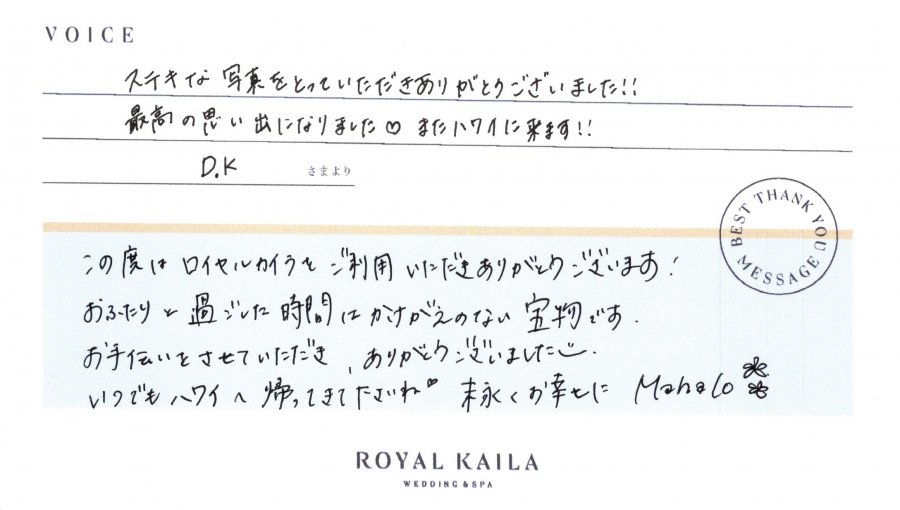 VOICE
ステキな写真をとっていただきありがとうございました!!
最高の思い出になりました♡ またハワイに来ます!!
D.K さまより
BEST THANK YOU MESSAGE
この度はロイヤルカイラをご利用いただきありがとうございます!
おふたりと過ごした時間はかけがえのない宝物です.
お手伝いをさせていただき、ありがとうございました.
いつでもハワイへ帰ってきて下さいね♡ 末永くお幸せに Mahalo
ROYAL KAILA
WEDDING & SPA